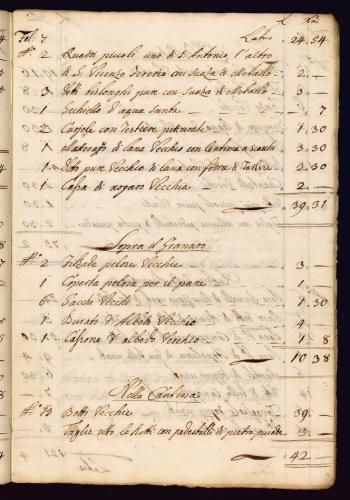 Fal: 7 Latro 24. 54
N.° 2 Quadri piccoli uno di S. Antonio, l'altro
di S. Vicenzo Fererio con suaza di Metallo 2. —
3 Detti bislonghi pure con suaza di Metallo 3. —
1 Sechiello d'aqua santa — . 7
2 Cariole con Testiere piturate 1. 30
1 Matarazo di lana Vechio con a scachi 3. 30
1 Detto pure Vecchio di lana con fodra di 2. 30
1 Cassa di nogaro Vecchia 2. —
39. 31
Sopra il Granaro
N.° 2 Pelose Vecchie 3. —
1 Coperta pelosa per il pane 1. —
6 Sacchi Vecchi 1. 30
1 Burato d'Albeo Vecchio 4 —
1 Casone d'albeo Vecchio 1. 8
10 38
Nella Canevina
N.° 13 Botti Vecchie 39. —
Taglie sotto le Botti con pedestalli di pietra 3. —
42 —